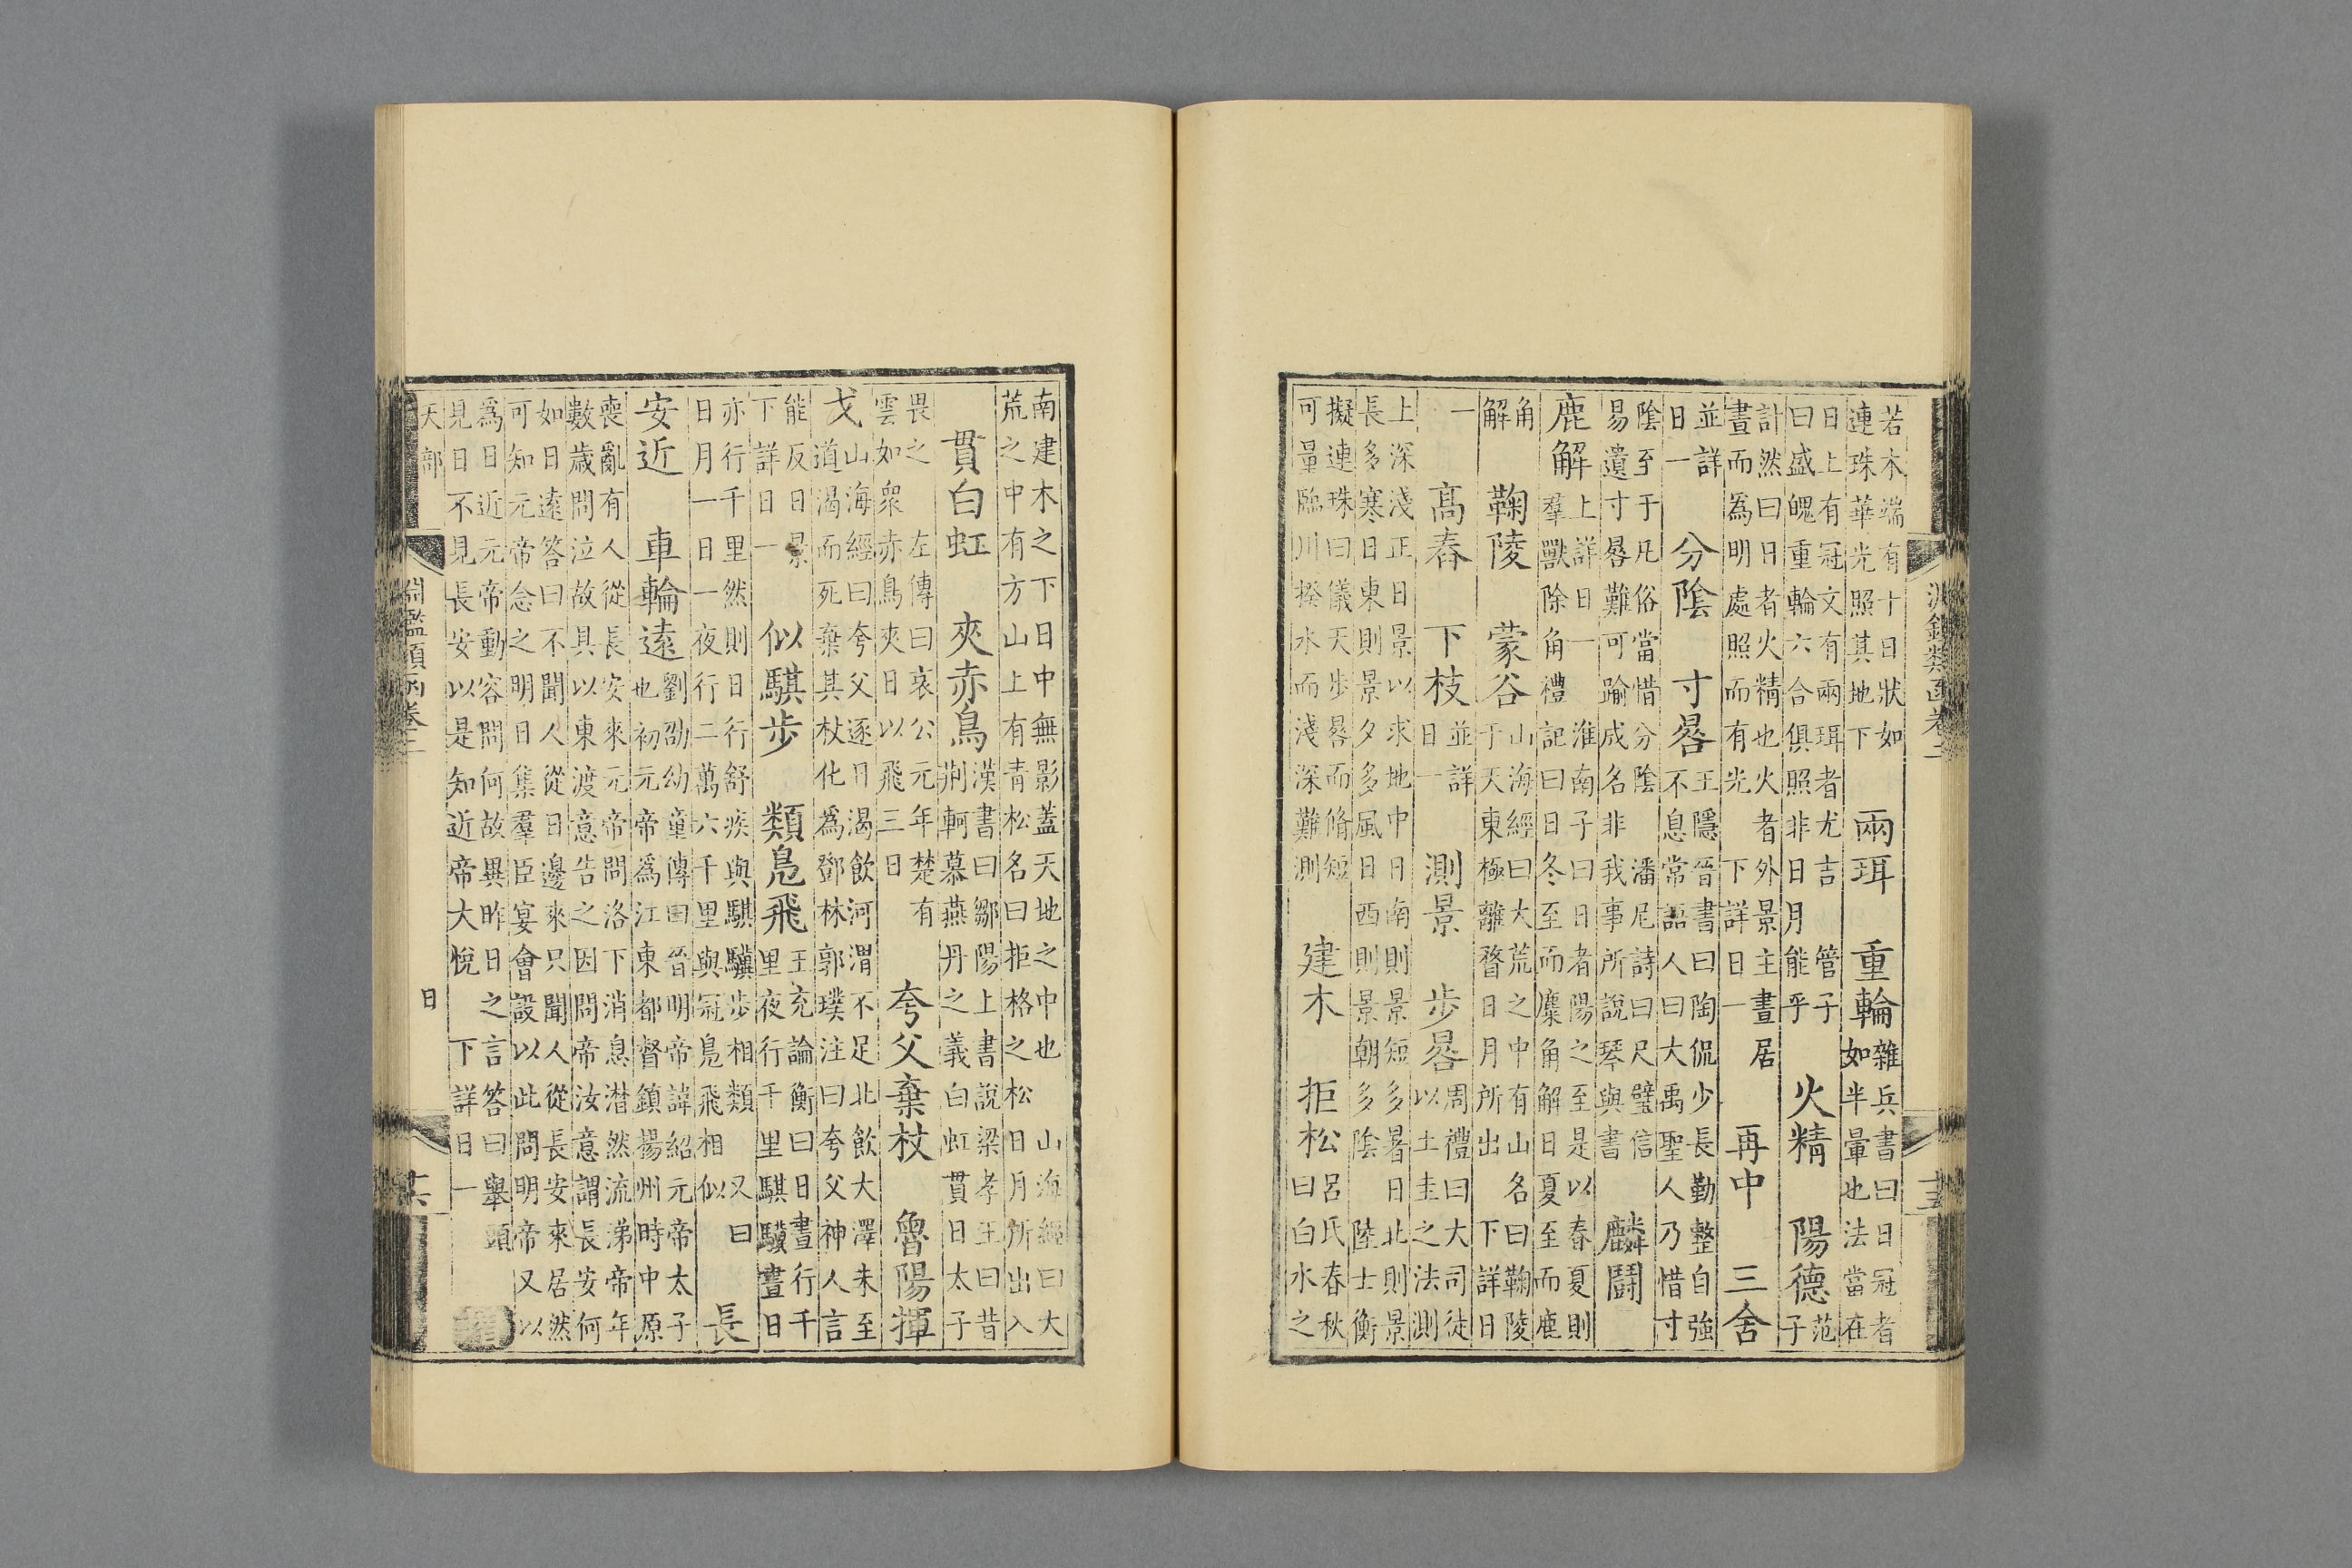 淵鑑類函卷二
若木端有十日狀如
連珠華光照其地下
兩珥 重輪
雜兵書曰日冠者
如半暈也法當在
日上有冠文有兩珥者尤吉 管子
曰盛魄重輪六合俱照非日月能乎
火精 陽德
范
子
計然曰日者火精也火者外景主晝居
晝而為明處照而有光 下詳日一
再中 三舍
並詳
日一
分陰 寸晷
王隱晉書曰陶侃少長勤整自強
不息常語人曰大禹聖人乃惜寸
陰至于凡俗當惜分陰 潘尼詩曰尺璧信
易遺寸晷難可踰成名非我事所說琴與書
麟鬬
鹿解
上詳日一 淮南子曰日者陽之至是以春夏則
羣獸除角禮記曰日冬至而麋角解日夏至而鹿
角
解
鞠陵 蒙谷
山海經曰大荒之中有山名曰鞠陵
于天東極離瞀日月所出 下詳日
一
高舂 下枝
並詳
日一
測景 步晷
周禮曰大司徒
以土圭之法測
上深淺正日景以求地中日南則景短多暑日北則景
長多寒日東則景夕多風日西則景朝多陰 陸士衡
擬連珠曰儀天步晷而脩短
可量臨川揆水而淺深難測
建木 拒松
呂氏春秋
曰白水之
南建木之下日中無影蓋天地之中也 山海經曰大
荒之中有方山上有青松名曰拒格之松日月所出入
貫白虹 夾赤鳥
漢書曰鄒陽上書說梁孝王曰昔
荆軻慕燕丹之義白虹貫日太子
畏之 左傳曰哀公元年楚有
雲如衆赤鳥夾日以飛三日
夸父棄杖 魯陽揮
戈
山海經曰夸父逐日渴飲河渭不足北飲大澤未至
道渴而死棄其杖化為鄧林郭璞注曰夸父神人言
能反日景
下詳日一
似騏步 類鳧飛
王充論衡曰日晝行千
里夜行千里騏驥晝日
亦行千里然則日行舒疾與騏驥步相類 又曰
日月一日一夜行二萬六千里與冠鳧飛相似
長
安近 車輪遠
劉劭幼童傳曰晉明帝諱紹元帝太子
也初元帝為江東都督鎮揚州時中原
喪亂有人從長安來元帝問洛下消息潸然流涕帝年
數歲問泣故具以東渡意告之因問帝汝意謂長安何
如日遠答曰不聞人從日邊來只聞人從長安來居然
可知元帝念之明日集羣臣宴會設以此問明帝又以
為日近元帝動容問何故異昨日之言答曰舉頭
見日不見長安以是知近帝大悅 下詳日一
增
天部 日
淵鑑類函卷二